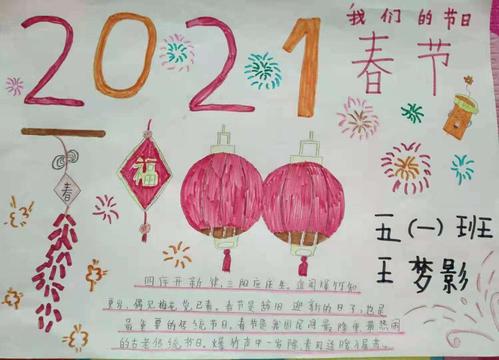 2021
我们的节日
春节
福
春
五(一)班
王梦影
四序开新律,三阳应庄
春节是辞旧迎新的日子,也是
最重要的传统节日。春节是我国民间最隆重最热闹
的古老传统节日。爆竹声中一岁除春风送暖